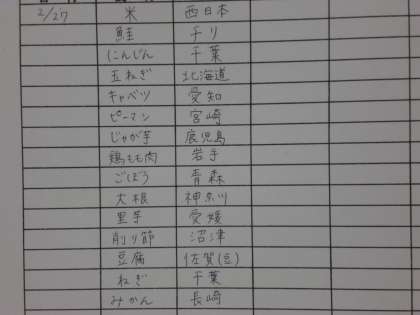 2/27 米 西日本
鮭 チリ
にんじん 千葉
玉ねぎ 北海道
キャベツ 愛知
ピーマン 宮崎
じゃが芋 鹿児島
鶏もも肉 岩手
ごぼう 青森
大根 神奈川
里芋 愛媛
削り節 沼津
豆腐 佐賀(豆)
ねぎ 千葉
みかん 長崎